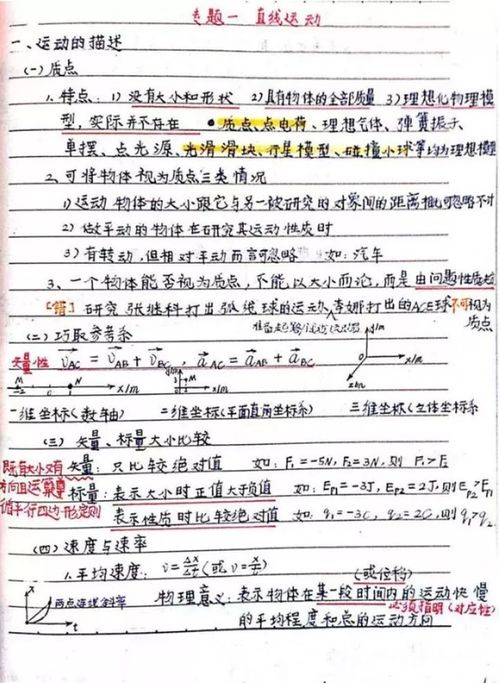 专题一 直线运动
一、运动的描述
(一) 质点
1、特点：1) 没有大小和形状 2) 具有物体的全部质量 3) 理想化物理模
型，实际并不存在 ● 质点、点电荷、理想气体、弹簧振子、
单摆、点光源、光滑滑块、行星模型、碰撞小球等均为理想模型
2、可将物体视为质点三类情况
1) 运动物体的大小跟它与另一被研究的对象间的距离相比可忽略不计
2) 做平动的物体在研究其运动性质时
3) 有转动，但相对平动而言可忽略 如：汽车
3、一个物体能否视为质点，不能以大小而论，而是由问题性质决定
[错] 研究张继科打出弧线球的运动、李娜打出的ACE球不可视为
质点
(二) 巧取参考系
矢量性 v⃗AC = v⃗AB + v⃗BC, a⃗AC = a⃗AB + a⃗BC
M N -2 0 x/m M x/m y/m x/m z/m
一维坐标(数轴) 二维坐标(平面直角坐标系) 三维坐标(立体坐标系
(三) 矢量、标量大小比较
既有大小又有 矢量：只比较绝对值 如：F₁=-5N, F₂=3N, 则 F₁>F₂
方向且运算遵 标量：表示大小时正值大于负值 如：EP1=-3J, EP2=2J, 则EP2>EP1
循平行四边形定则 表示性质时比较绝对值 如 q₁=-3C, q₂=2C, 则q₁>q₂
(四) 速度与速率
1.平均速度：v=Δx/Δt (或 v=x/t)
x t 两点连线斜率
(或位移)
物理意义：表示物体在某一段时间内的运动快慢
必须指明(对应性)
的平均程度和总的运动方向